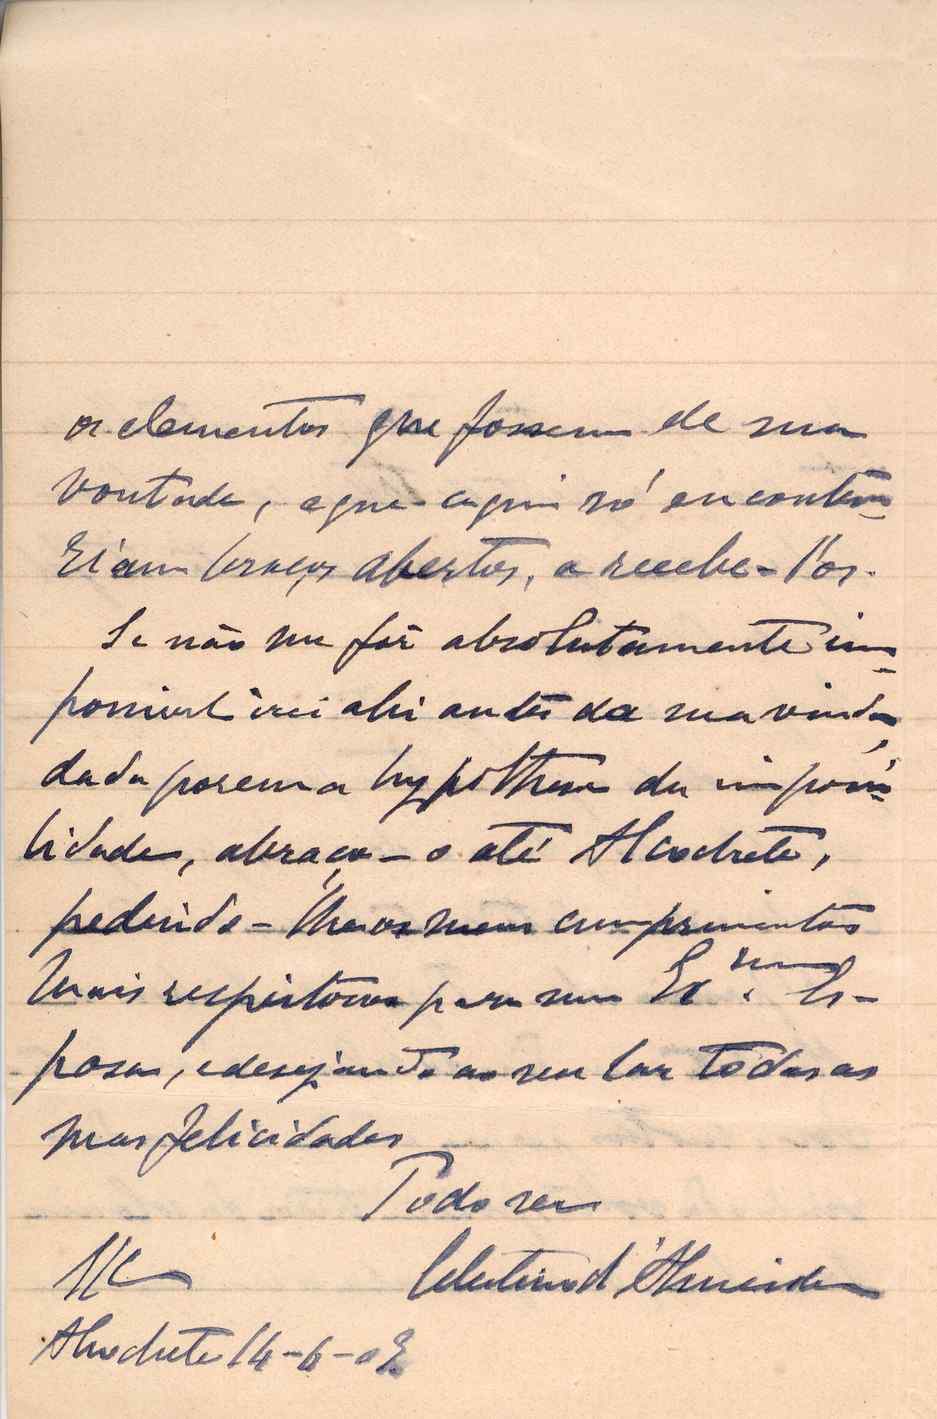 os elementos que fossem de sua
vontade, e que aqui só encontra-
riam braços abertos, a recebe-l'os.
Se não me fôr absolutamente im-
possivel irei ahi antes da sua vinda,
dada porem a hypothese da impossi-
bilidade, abraço-o até Alcochete,
pedindo-lhe os meus cumprimentos
mais respeitosos para sua Ex.ma Es-
posa, e desejando ao seu lar todas as
mas felicidades
Todo seu
S/C Celestino d'Almeida
Alcochete 14-6-0